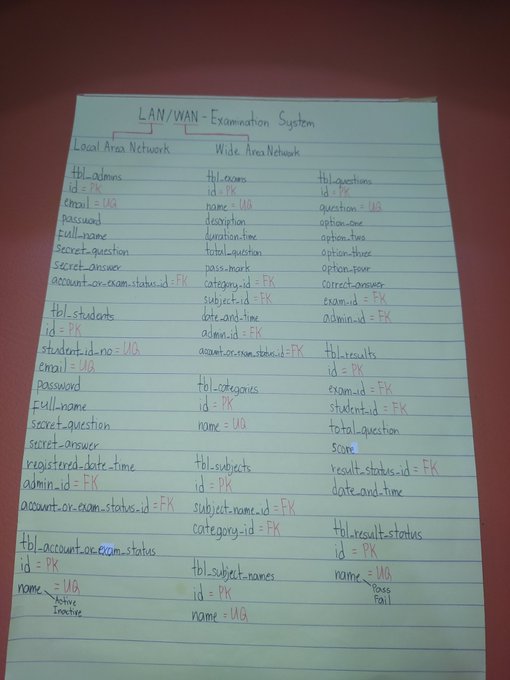 LAN/WAN - Examination System
Local Area Network
Wide Area Network
tbl_admins
id = PK
email = UQ
password
full_name
secret_question
secret_answer
account_or_exam_status_id = FK
tbl_students
id = PK
student_id_no = UQ
email = UQ
password
full_name
secret_question
secret_answer
registered_date_time
admin_id = FK
account_or_exam_status_id = FK
tbl_account_or_exam_status
id = PK
name = UQ
Active
Inactive
tbl_exams
id = PK
name = UQ
description
duration_time
total_question
pass_mark
category_id = FK
subject_id = FK
date_and_time
admin_id = FK
account_or_exam_status_id = FK
tbl_categories
id = PK
name = UQ
tbl_subjects
id = PK
subject_name_id = FK
category_id = FK
tbl_subject_names
id = PK
name = UQ
tbl_questions
id = PK
question = UQ
option_one
option_two
option_three
option_four
correct_answer
exam_id = FK
admin_id = FK
tbl_results
id = PK
exam_id = FK
student_id = FK
total_question
score
result_status_id = FK
date_and_time
tbl_result_status
id = PK
name = UQ
Pass
Fail